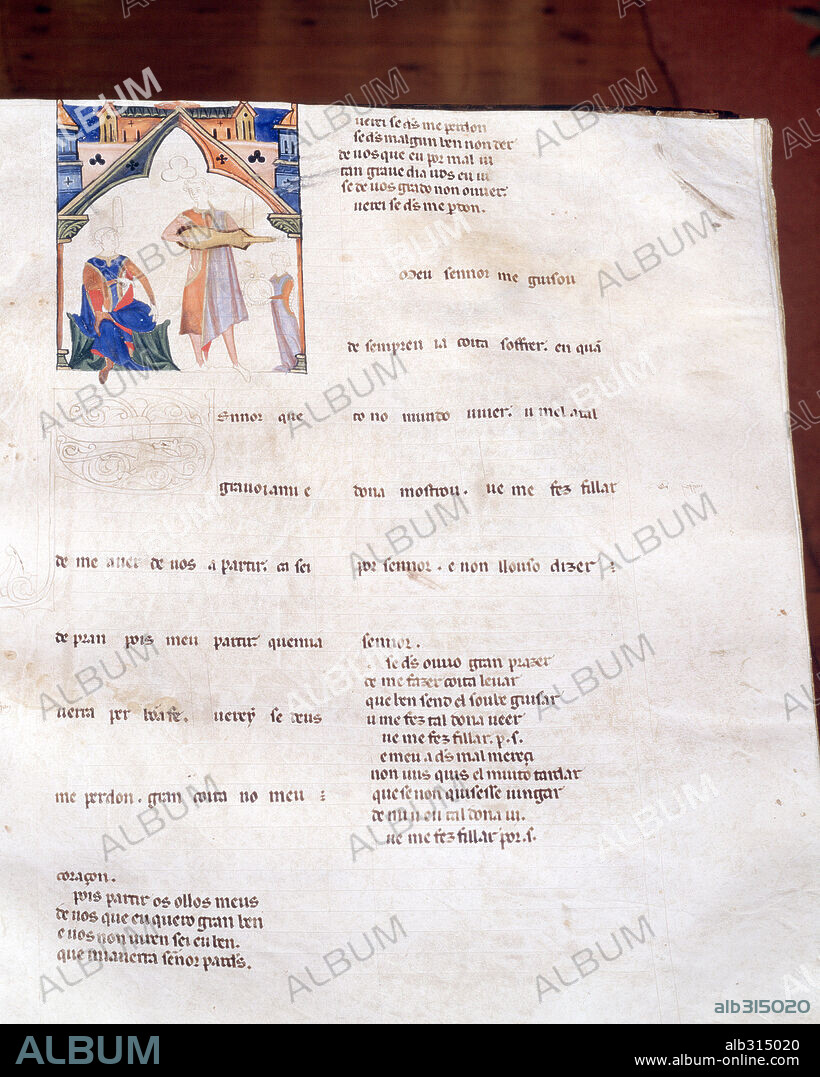 Sennor que
grauoianu e
de me auer de uos a partir. ca sei
de pran pois meu partir quemua
uerra per boa fe. uerey se deus
me perdon. gran coita no meu :
coraçon.
pois partir os ollos meus
de uos que eu quero gran ben
e uos non uiren sei eu ben.
que mauerra señor par ds.
uerei se ds me perdon
se ds malgun ben non der
de uos que eu por mal ui
tan graue dia uos eu ui
se de uos grado non ouuer.
uerei se ds me pdon.
Meu sennor me guisou
de sempreu ia coita soffrer. en quã
to no mundo uiuer. u mel atal
dona mostrou. ue me fez fillar
por sennor. e non llouso dizer :
sennor.
se ds ouuo gran prazer
de me fazer coita leuar
que ben sendel soube guisar
u me fez tal dona ueer
ue me fez fillar. p. s.
e meu a ds mal mereçi
non uus quis el muito tardar
que se non quisesse uingar
de mi u eu tal dona ui.
ue me fez fillar por. s.
ALBUM
alb315020
alb315020
www.album-online.com